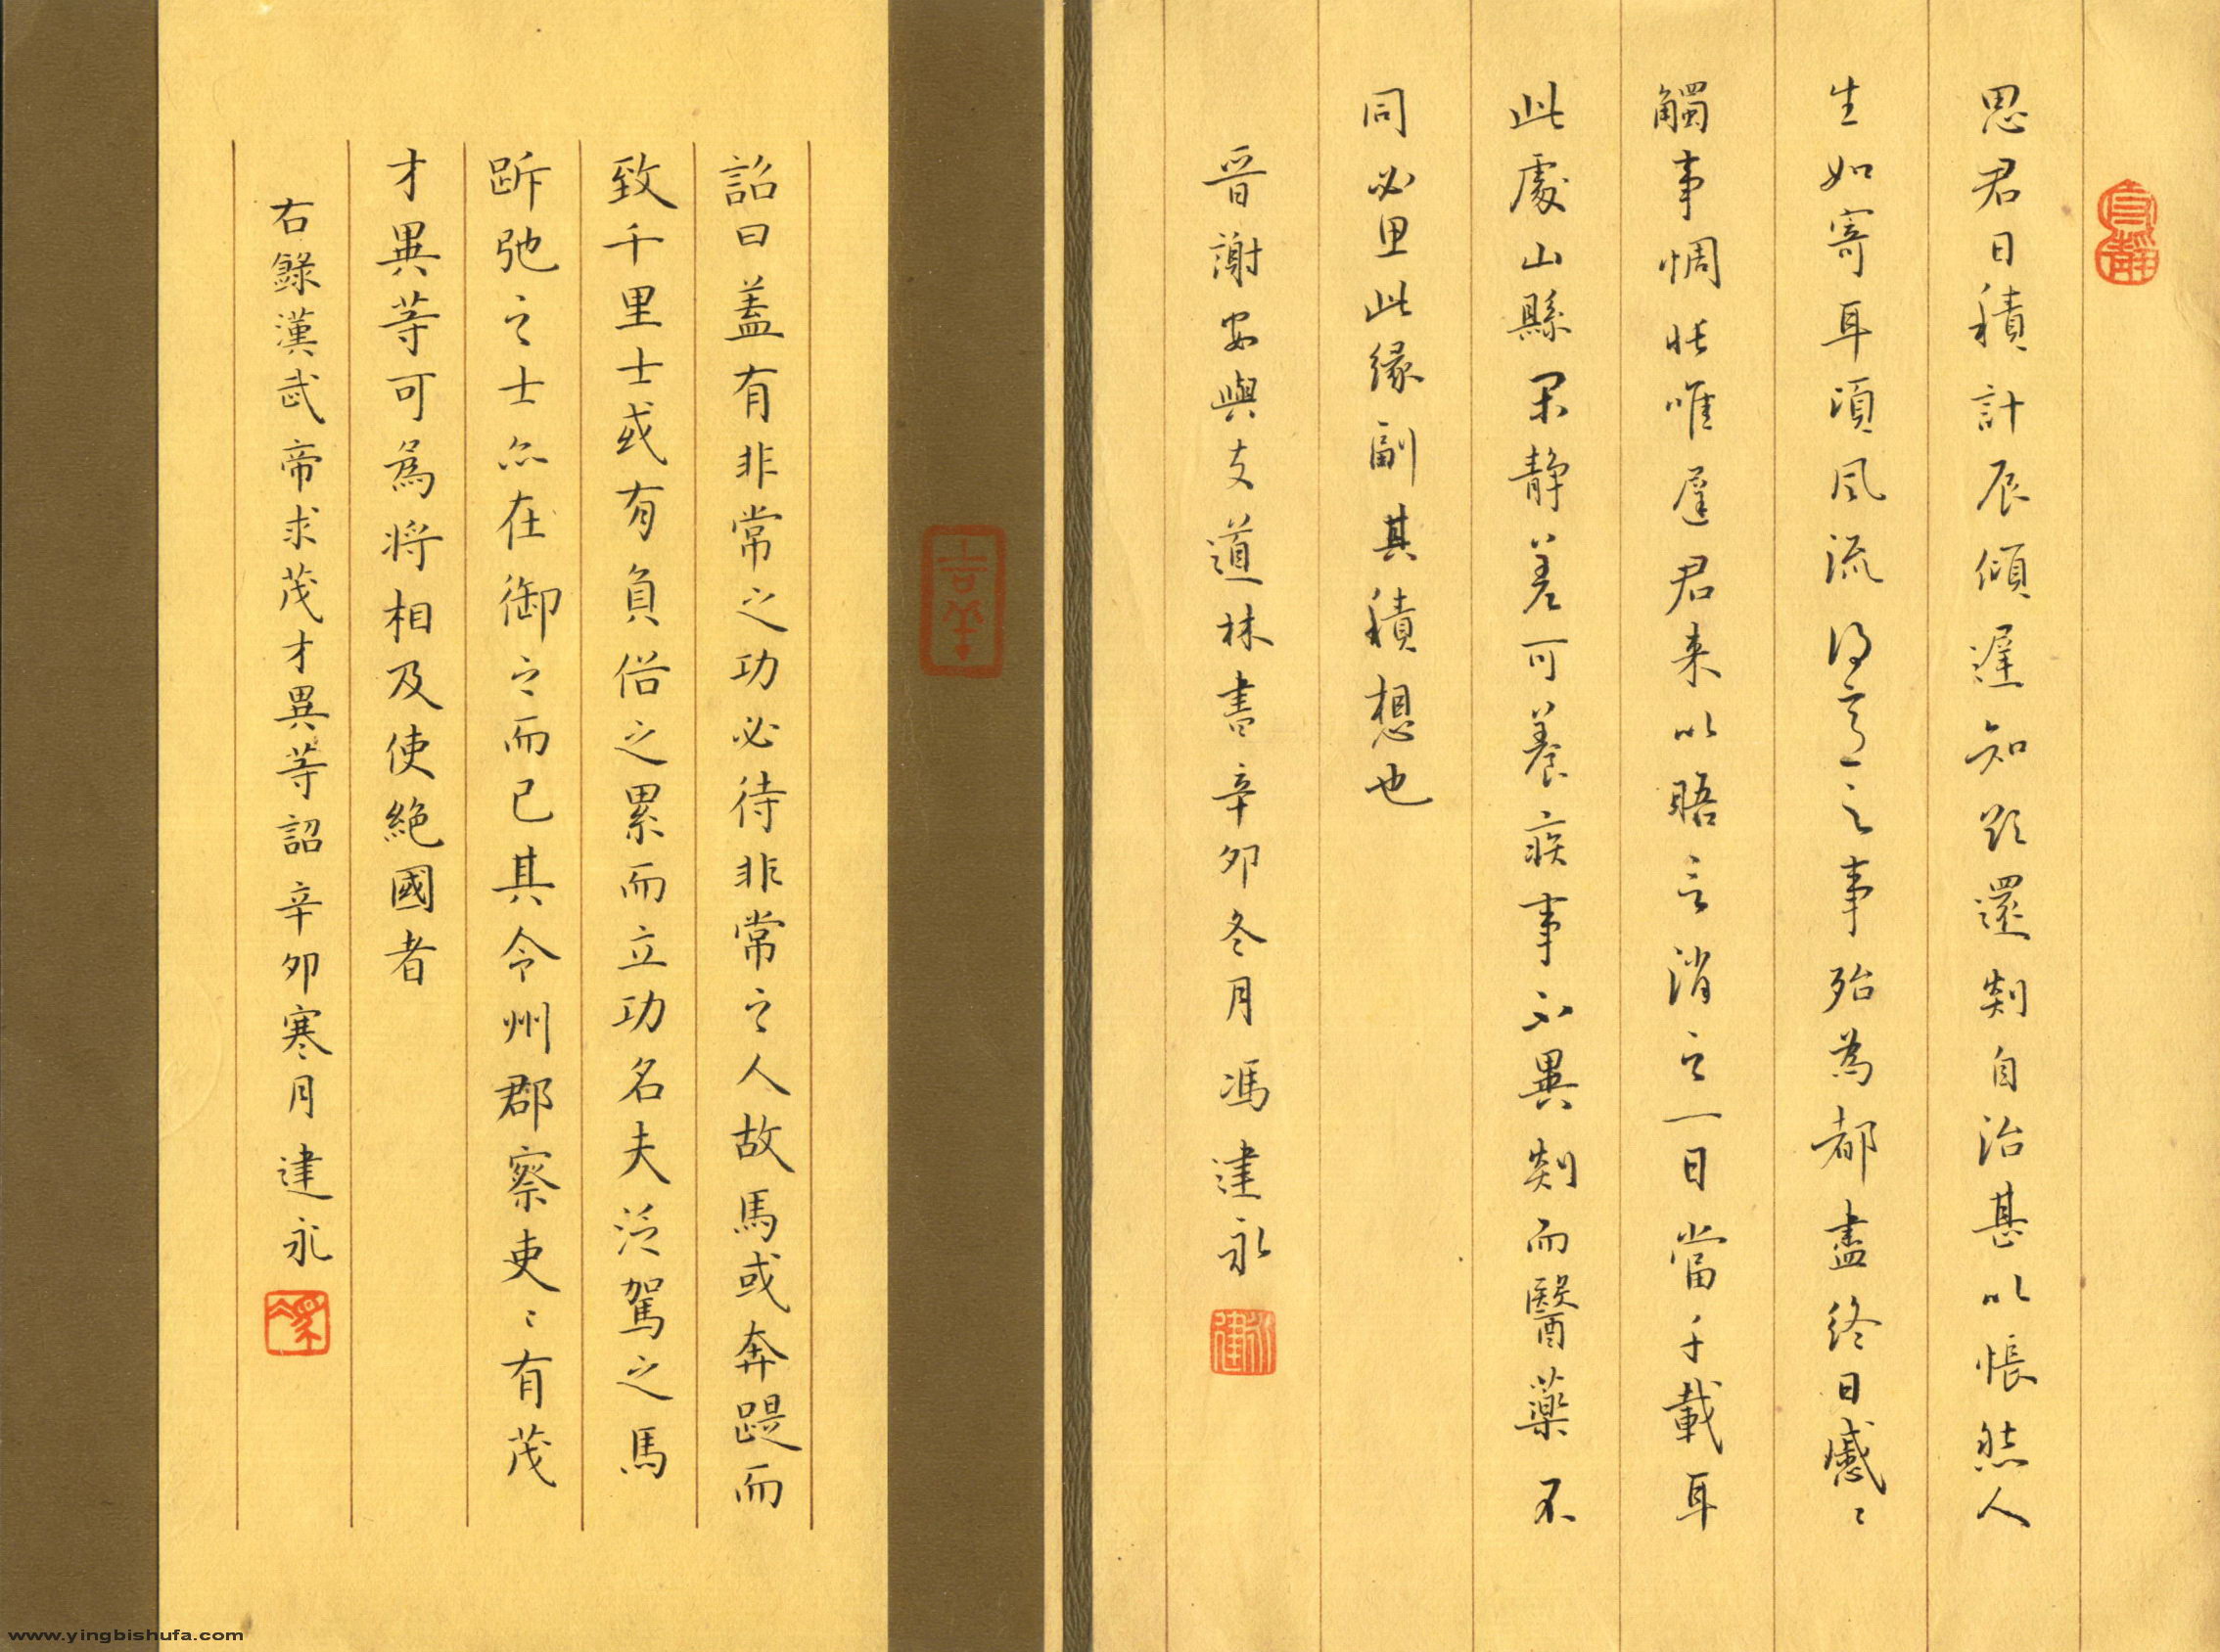 思君日積計辰傾遲知欲還剡自治甚以悵然人
生如寄耳頃風流得意之事殆為都盡終日慼〻
觸事惆悵唯遲君来以晤言消之一日當千載耳
此處山縣閑静差可養疾事不異剡而醫藥不
同必思此緣副其積想也
晋謝安與支道林書辛卯冬月馮建永
詔曰蓋有非常之功必待非常之人故馬或奔踶而
致千里士或有負俗之累而立功名夫泛駕之馬
跅弛之士亦在御之而已其令州郡察吏〻有茂
才異等可為将相及使絶國者
右錄漢武帝求茂才異等詔辛卯寒月建永
www.yingbishufa.com